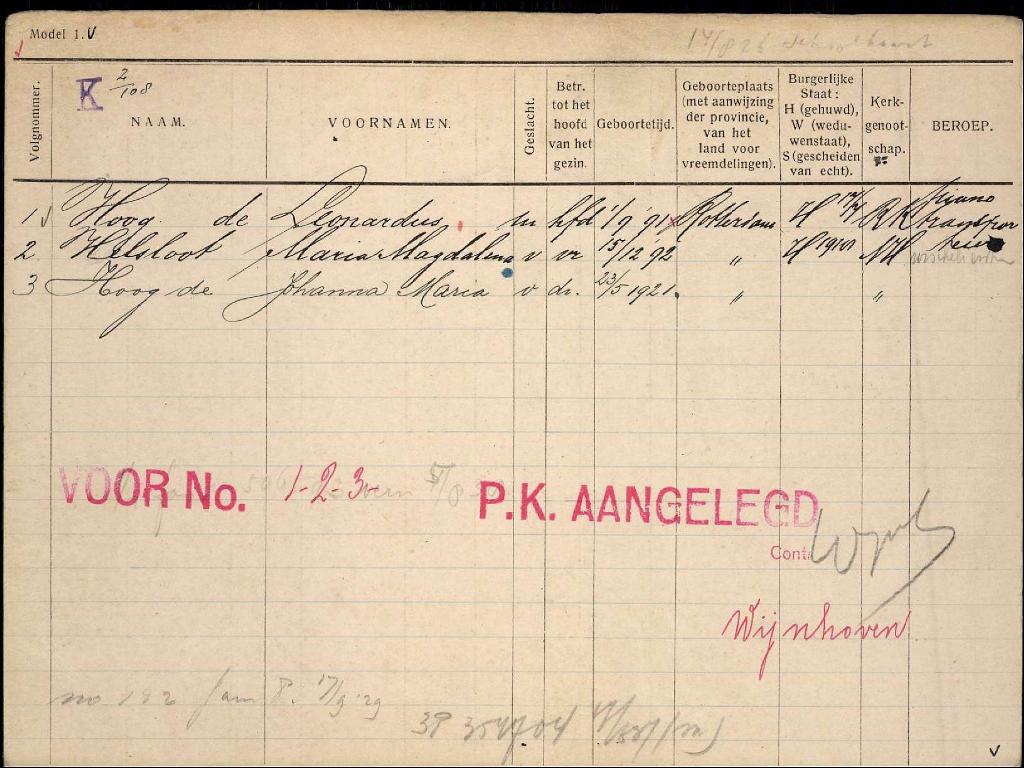 Model 1. V
K 2/108
Volgnommer.
NAAM.
VOORNAMEN.
Geslacht.
Betr. tot het hoofd van het gezin.
Geboortetijd.
Geboorteplaats (met aanwijzing der provincie, van het land voor vreemdelingen).
Burgerlijke Staat: H (gehuwd), W (weduwenstaat), S (gescheiden van echt).
Kerkgenootschap.
BEROEP.
1 Hoog de Leonardus m hfd 1/9 '91 Rotterdam H R K
2 Helsloot Maria Magdalena v vr 15/12 '92 " H NH
3 Hoog de Johanna Maria v dr. 23/5 1921. " "
VOOR No. 1-2-3- P.K. AANGELEGD
Wijnhoven
no 192 fam 8. 17/9 '29